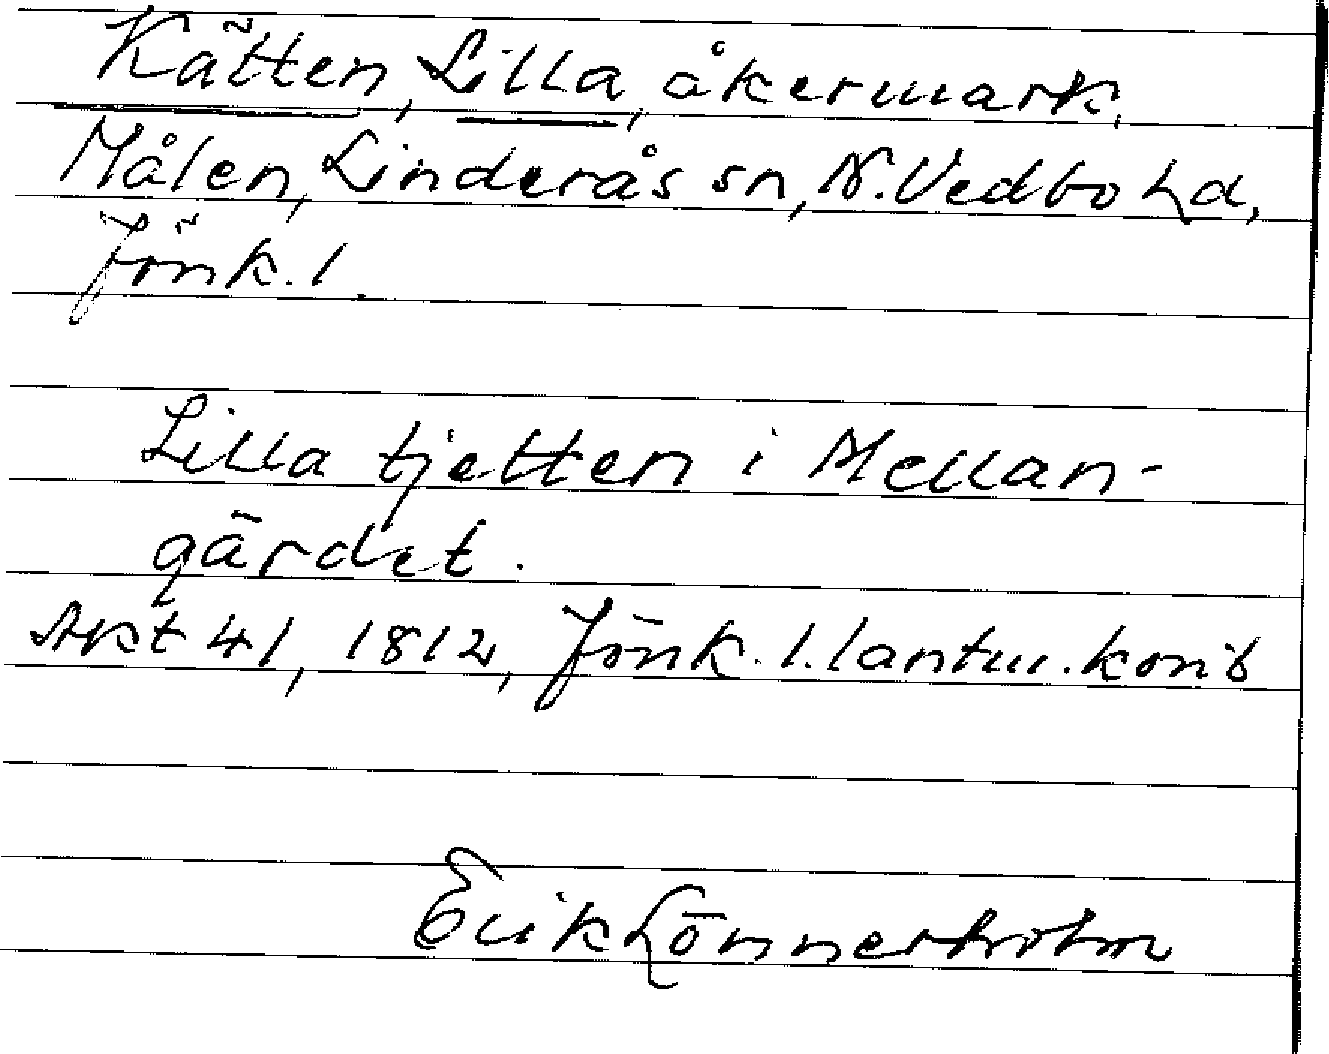 Kätten, Lilla, åkermark,
Målen, Linderås sn, N. Vedbo hd,
Jönk. l.
Lilla tjetten i Mellan-
gärdet.
Akt 41, 1812, Jönk. l. lantm. kont
Erik Lönnerholm